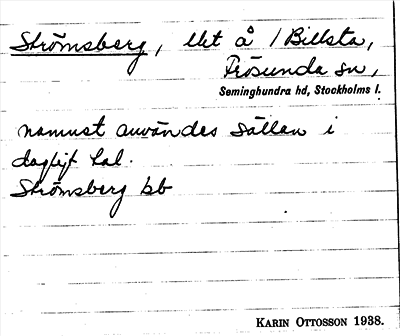 Strömsberg, lht å 1 Billsta,
Frösunda sn,
Seminghundra hd, Stockholms l.
namnet användes sällan i
dagligt tal.
Strömsberg kb
KARIN OTTOSSON 1938.